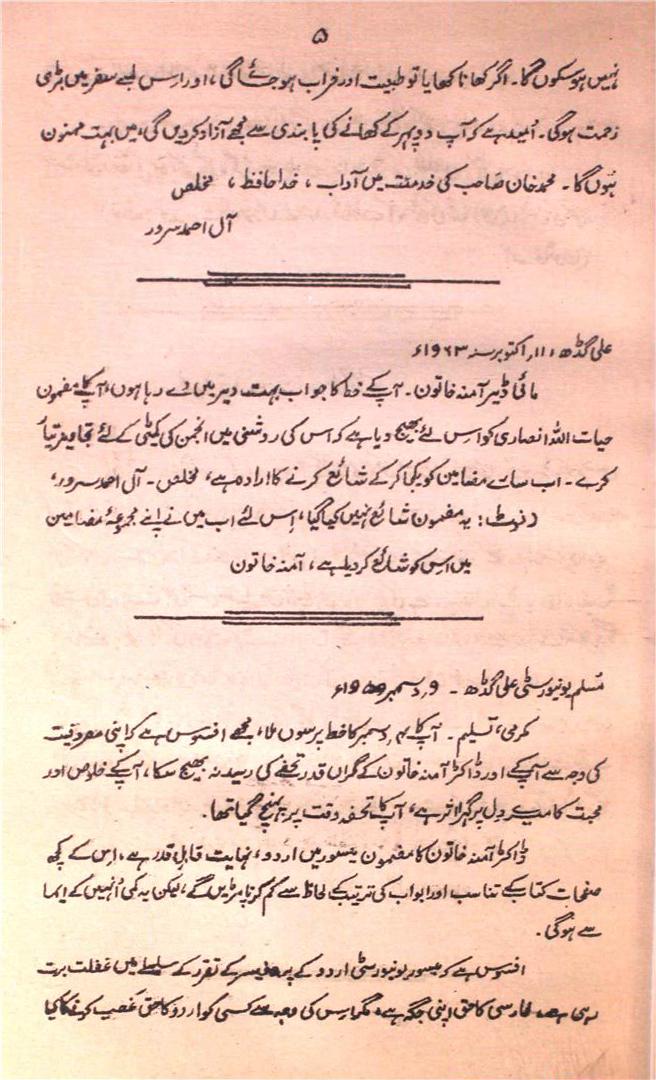 ۵
نہیں ہو سکوں گا۔ اگر کھانا کھایا تو طبیعت اور خراب ہو جائے گی، اور اس لمبے سفر میں بڑی
زحمت ہوگی۔ اُمید ہے کہ آپ دوپہر کے کھانے کی پابندی سے مجھے آزاد کر دیں گی، میں بہت ممنون
ہوں گا۔ محمد خان صاحب کی خدمت میں آداب، خدا حافظ، مخلص
آل احمد سرور
علی گڈھ، ۱۱؍ اکتوبر سنہ ۱۹۶۳ء
مائی ڈیر آمنہ خاتون۔ آپ کے خط کا جواب بہت دیر میں دے رہا ہوں، آپ کا مضمون
حیات اللہ انصاری کو اس لئے بھیج دیا ہے کہ اس کی روشنی میں انجمن کی کمیٹی کے لئے تجاویز مرتب
کرے۔ اب سارے مضامین کو یکجا کر کے شائع کرنے کا ارادہ ہے، مخلص۔ آل احمد سرور،
(نوٹ: یہ مضمون شائع نہیں کیا گیا، اِس لئے اب میں نے اپنے مجموعۂ مضامین
میں اس کو شائع کر دیا ہے، آمنہ خاتون
مسلم یونیورسٹی علی گڈھ۔ ۹؍ دسمبر ۱۹۵۹ء
مکرمی، تسلیم۔ آپ کا ۴؍ دسمبر کا خط پرسوں ملا، مجھے افسوس ہے کہ اپنی مصروفیت
کی وجہ سے آپ کے اور ڈاکٹر آمنہ خاتون کے گراں قدر تحفے کی رسید نہ بھیج سکا، آپ کے خلوص اور
محبت کا میرے دِل پر گہرا اثر ہے، آپ کا تحفہ وقت پر پہنچ گیا تھا۔
ڈاکٹر آمنہ خاتون کا مضمون میسور میں اردو، نہایت قابلِ قدر ہے، اِس کے کچھ
صفحات کتاب کے تناسب اور ابواب کی ترتیب کے لحاظ سے کم کرنا پڑیں گے، لیکن یہ کمی اُنہیں کے ایما
سے ہوگی۔
افسوس ہے کہ میسور یونیورسٹی اردو کے پروفیسر کے تقرر کے سلسلے میں غفلت برت
رہی ہے۔ فارسی کا حق اپنی جگہ ہے، مگر اِس کی وجہ سے کسی کو اردو کا حق غصب کرنے کا کیا